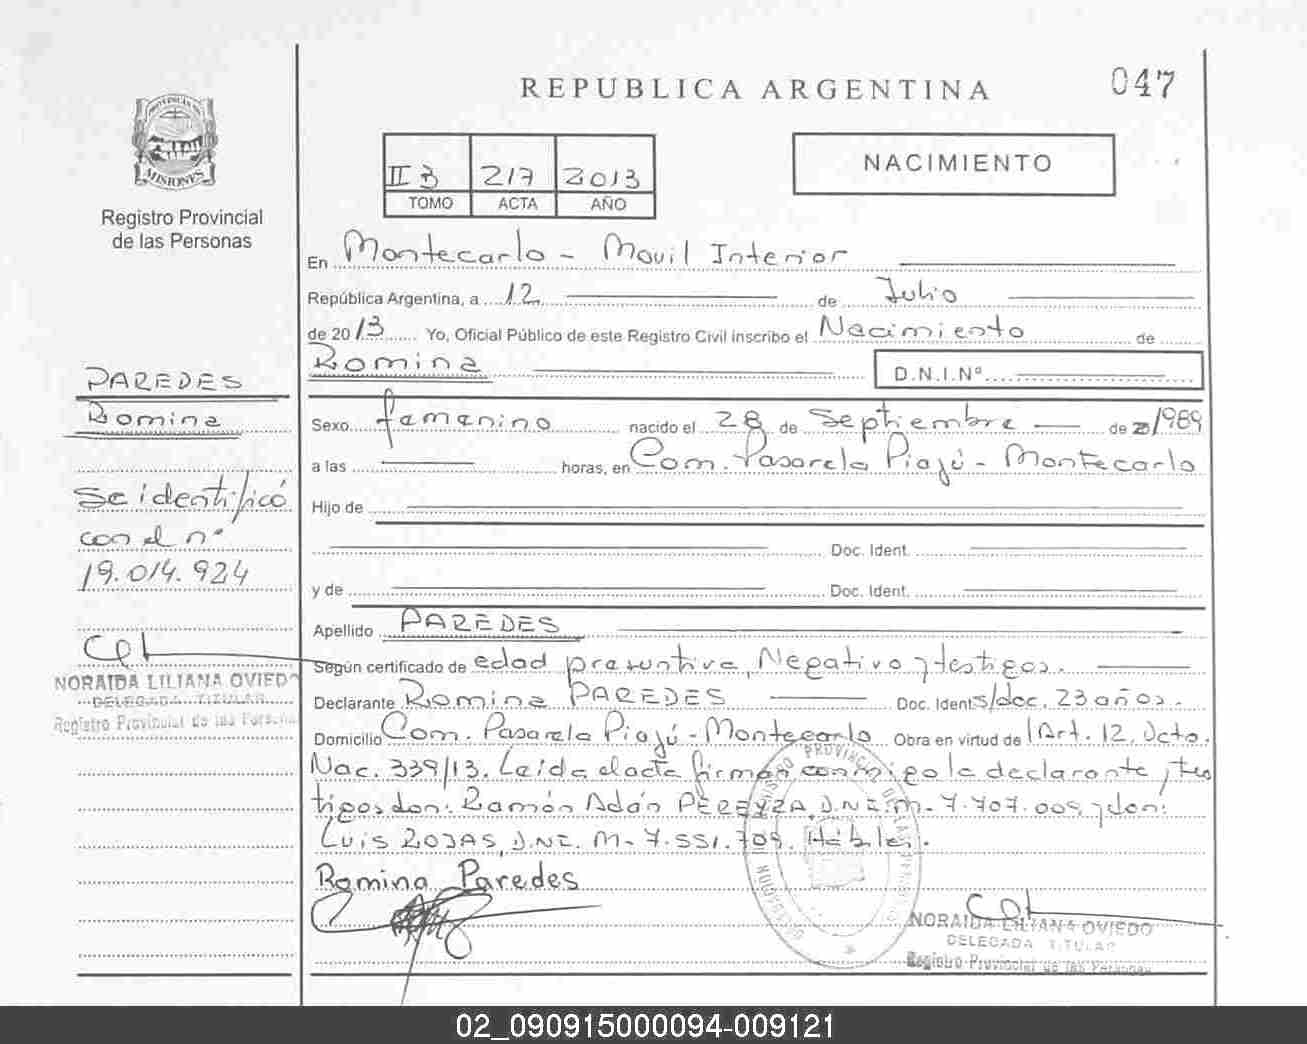 REPUBLICA ARGENTINA
047
PROVINCIA DE
MISIONES
Registro Provincial
de las Personas
II B 217 2013
TOMO ACTA AÑO
NACIMIENTO
En Montecarlo - Movil Interior
República Argentina, a 12 de Julio
de 2013 Yo, Oficial Público de este Registro Civil inscribo el Nacimiento de
Romina D.N.I.Nº
PAREDES
Romina
Se identificó
con el nº
19.014.924
NORAIDA LILIANA OVIEDO
DELEGADA TITULAR
Registro Provincial de las Personas
Sexo femenino nacido el 28 de Septiembre de 1989
a las horas, en Com. Pasarela Piajú - Montecarlo
Hijo de
Doc. Ident.
y de Doc. Ident.
Apellido PAREDES
Según certificado de edad presuntiva, Negativo y testigos.
Declarante Romina PAREDES Doc. Ident s/doc. 23 años.
Domicilio Com. Pasarela Piajú - Montecarlo Obra en virtud de Art. 12. Dcto.
Nac. 339/13. Leida el acta firman conmigo la declarante, tes
tigos don: Ramón Adán PEREYRA, D.NI. M- 7.707.009, y don:
Luis ROJAS, D.NI. M- 7.551.709. Hábiles.
Romina Paredes
NORAIDA LILIANA OVIEDO
DELEGADA TITULAR
Registro Provincial de las Personas
02_090915000094-009121